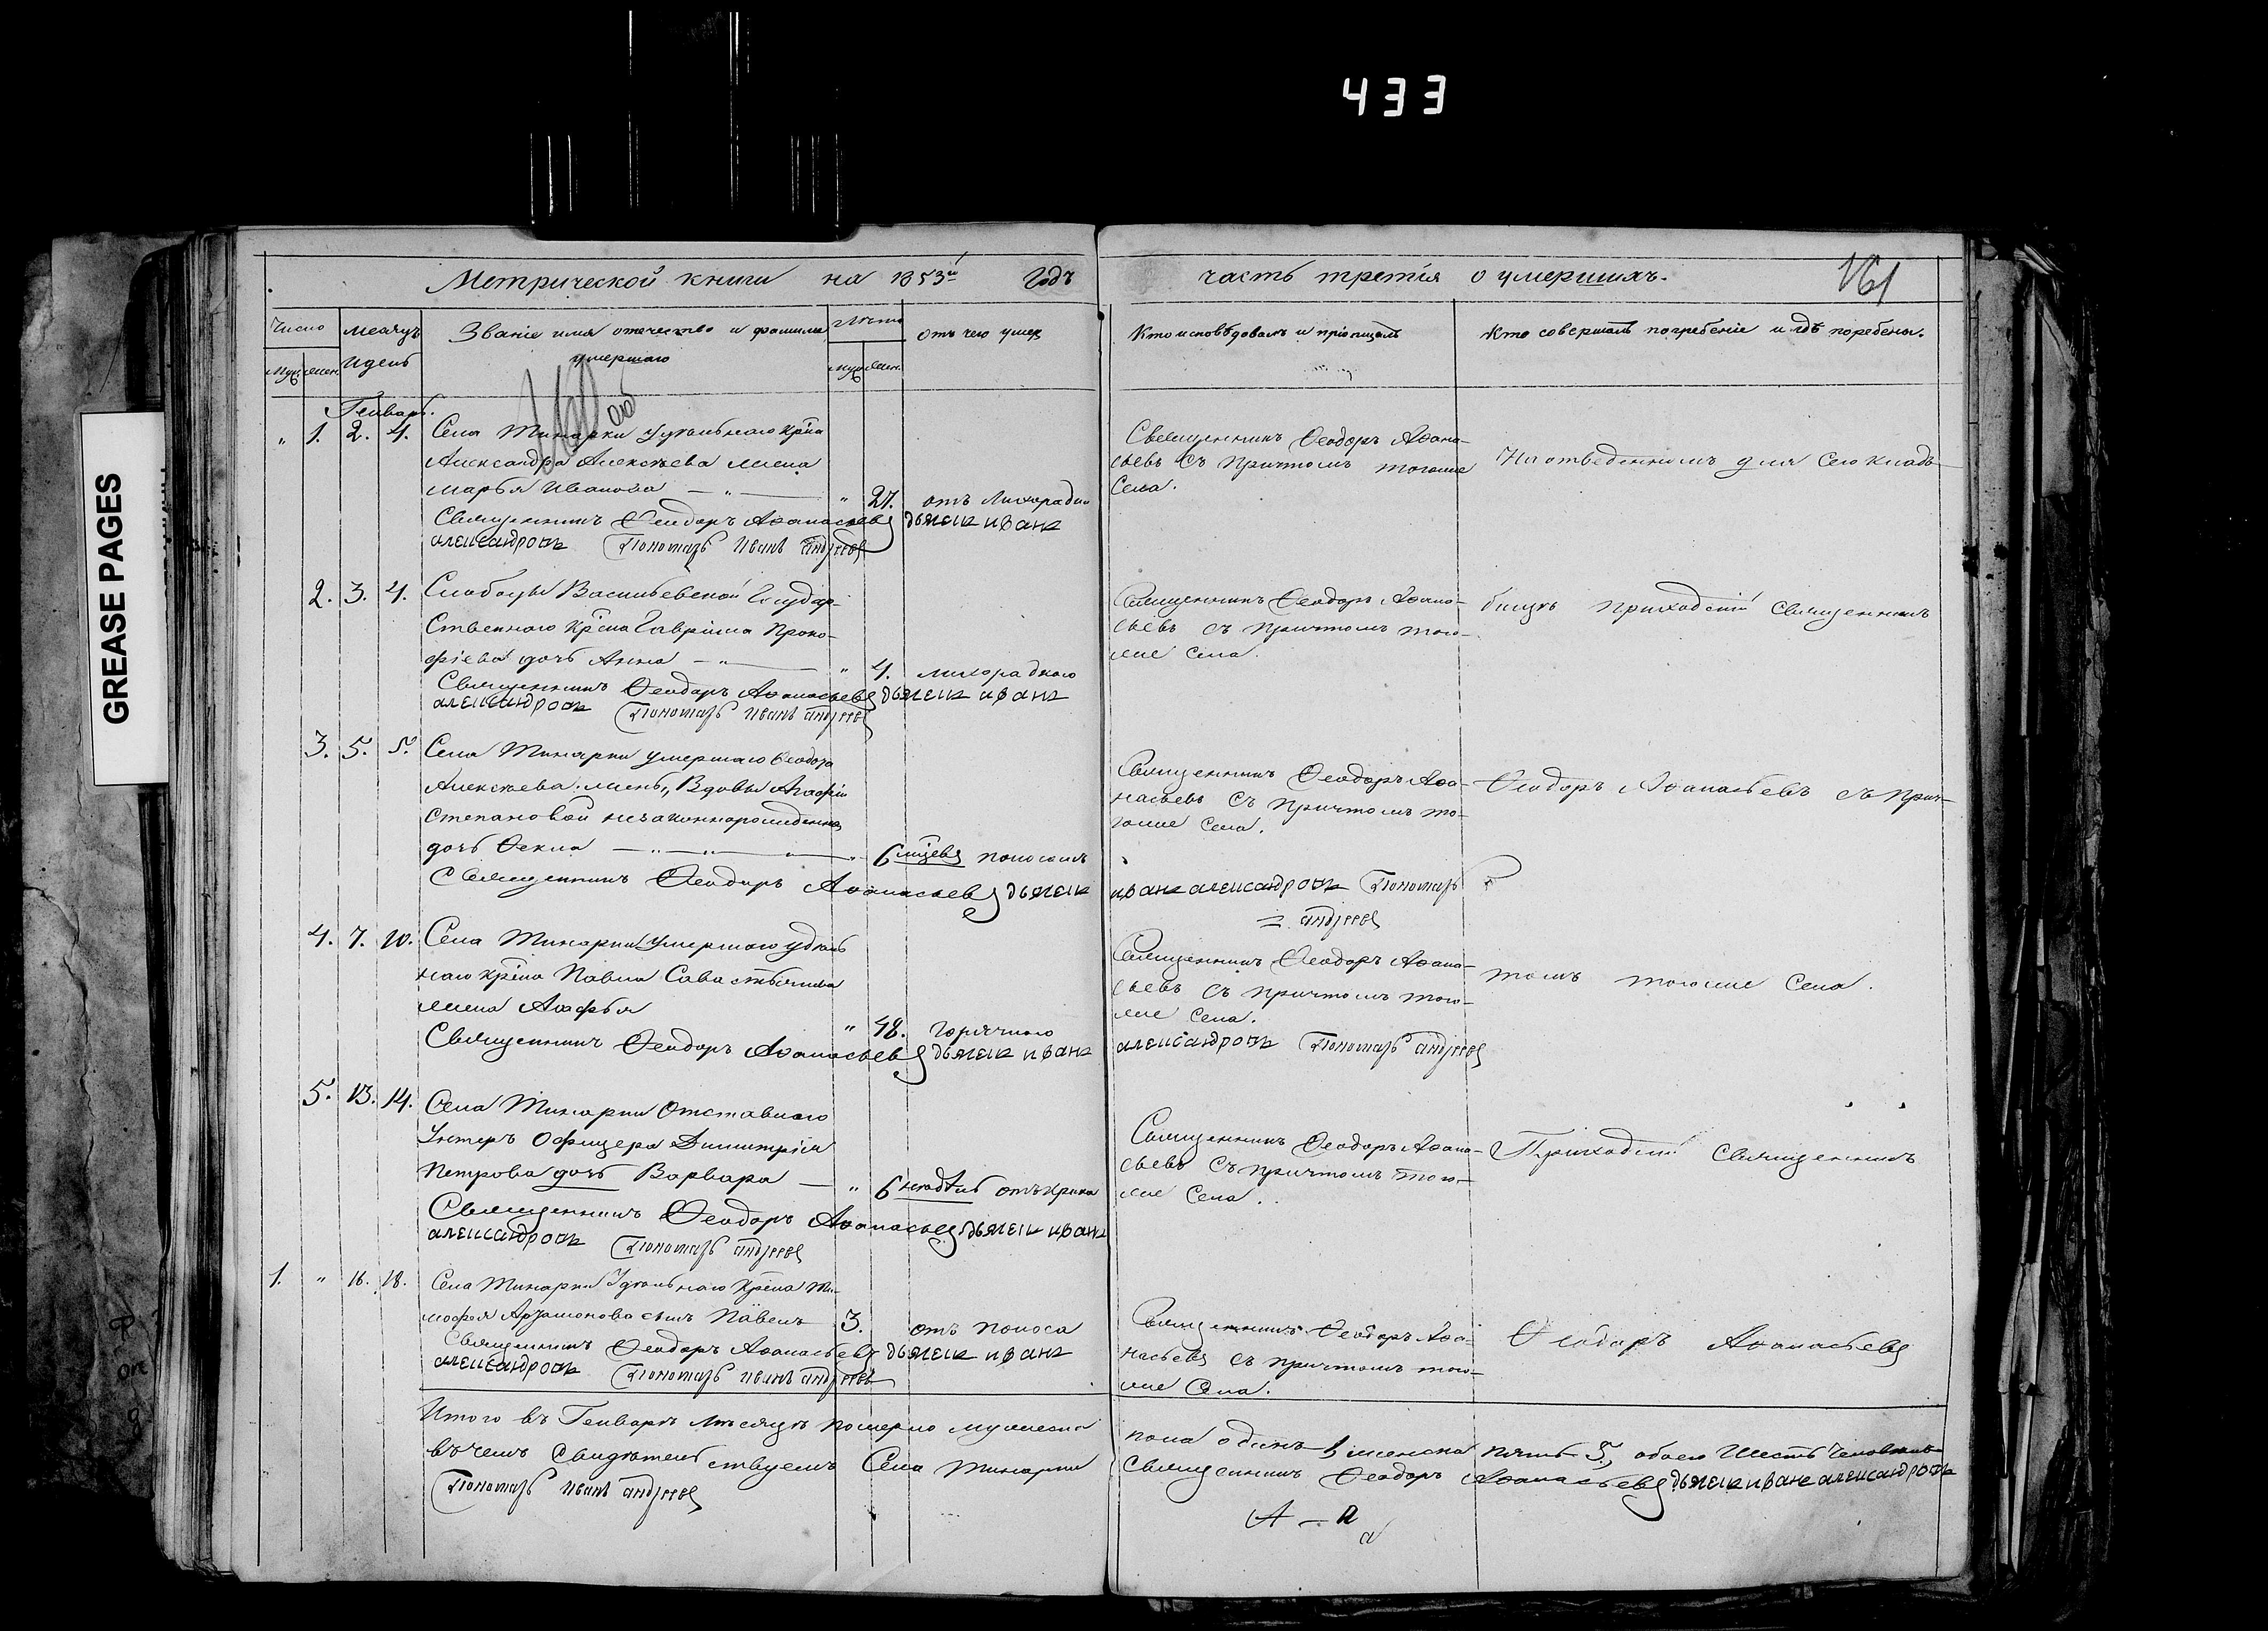 433
GREASE PAGES
Метрической книги на 1853й Годъ часть третія о умершихъ.
161
Число
муж. жен.
месяцъ и день
Званіе имя отечество и фамилія умершаго
Лета
муж. жен.
отъ чего умер
Кто исповѣдовалъ и пріобщалъ
Кто совершалъ погребеніе и гдѣ погребены.
Генварь.
" 1. 2. 4. Села Тинарки удѣльнаго крѣна
Александра Алексѣева жена
марья Иванова — " — " 27. отъ Лихорадки
Священникъ Ѳеодоръ Аѳанасьевъ дьячекъ иванъ
александровъ Пономарь иванъ андреевъ
Священникъ Ѳеодоръ Аѳана-
сьевъ съ Причтомъ тогоже
Села.
На отведенномъ для сего кладъ
2. 3. 4. Слободы Васильевской Государ-
ственнаго крѣна Гавріила Проко-
фіева дочь Анна — " — " 4. лихорадкою
Священникъ Ѳеодоръ Аѳанасьевъ дьячекъ иванъ
александровъ Пономарь иванъ андреевъ
Священникъ Ѳеодоръ Аѳана-
сьевъ съ Причтомъ того-
же Села.
бищѣ Приходскій Священникъ
3. 5. 5. Села Тинарки умершаго Ѳеодора
Алексѣева жены, Вдовы Агафіи
Степановой незаконнорожденна
дочь Ѳекла — " — " — " 6 мцевъ поносомъ
Священникъ Ѳеодоръ Аѳанасьевъ дьячекъ
иванъ александровъ Пономарь
андреевъ
Священникъ Ѳеодоръ Аѳа-
насьевъ съ Причтомъ то-
гоже Села.
Ѳеодоръ Аѳанасьевъ съ прич-
4. 7. 10. Села Тинарки умершаго удѣль
наго крѣна Павла Савастьянова
жена Агафья " 48. Горячкою
Священникъ Ѳеодоръ Аѳанасьевъ дьячекъ иванъ
александровъ Пономарь андреевъ
Священникъ Ѳеодоръ Аѳана-
сьевъ съ причтомъ того-
же Села.
томъ тогоже Села.
5. 13. 14. Села Тинарки Отставнаго
Унтеръ Офицера Димитрія
Петрова дочь Варвара — " 6 недѣль отъ крика
Священникъ Ѳеодоръ Аѳанасьевъ дьячекъ иванъ
александровъ Пономарь андреевъ
Священникъ Ѳеодоръ Аѳана-
сьевъ съ причтомъ того-
же Села.
Приходскій Священникъ
1. " 16. 18. Села Тинарки Удѣльнаго Крѣна Ти-
моѳея Арзамонова сынъ Павелъ 3. отъ поноса
Священникъ Ѳеодоръ Аѳанасьевъ дьячекъ иванъ
александровъ Пономарь иванъ андреевъ
Священникъ Ѳеодоръ Аѳа-
насьевъ съ причтомъ того-
же Села.
Ѳеодоръ Аѳанасьевъ
Итого въ Генварѣ мѣсяцѣ померло мужеска пола одинъ 1 женска пять 5, обоего Шесть Человѣкъ
въ чемъ Свидѣтельствуемъ Села Тинарки Священникъ Ѳеодоръ Аѳанасьевъ дьячекъ иванъ александровъ
Пономарь иванъ андреевъ